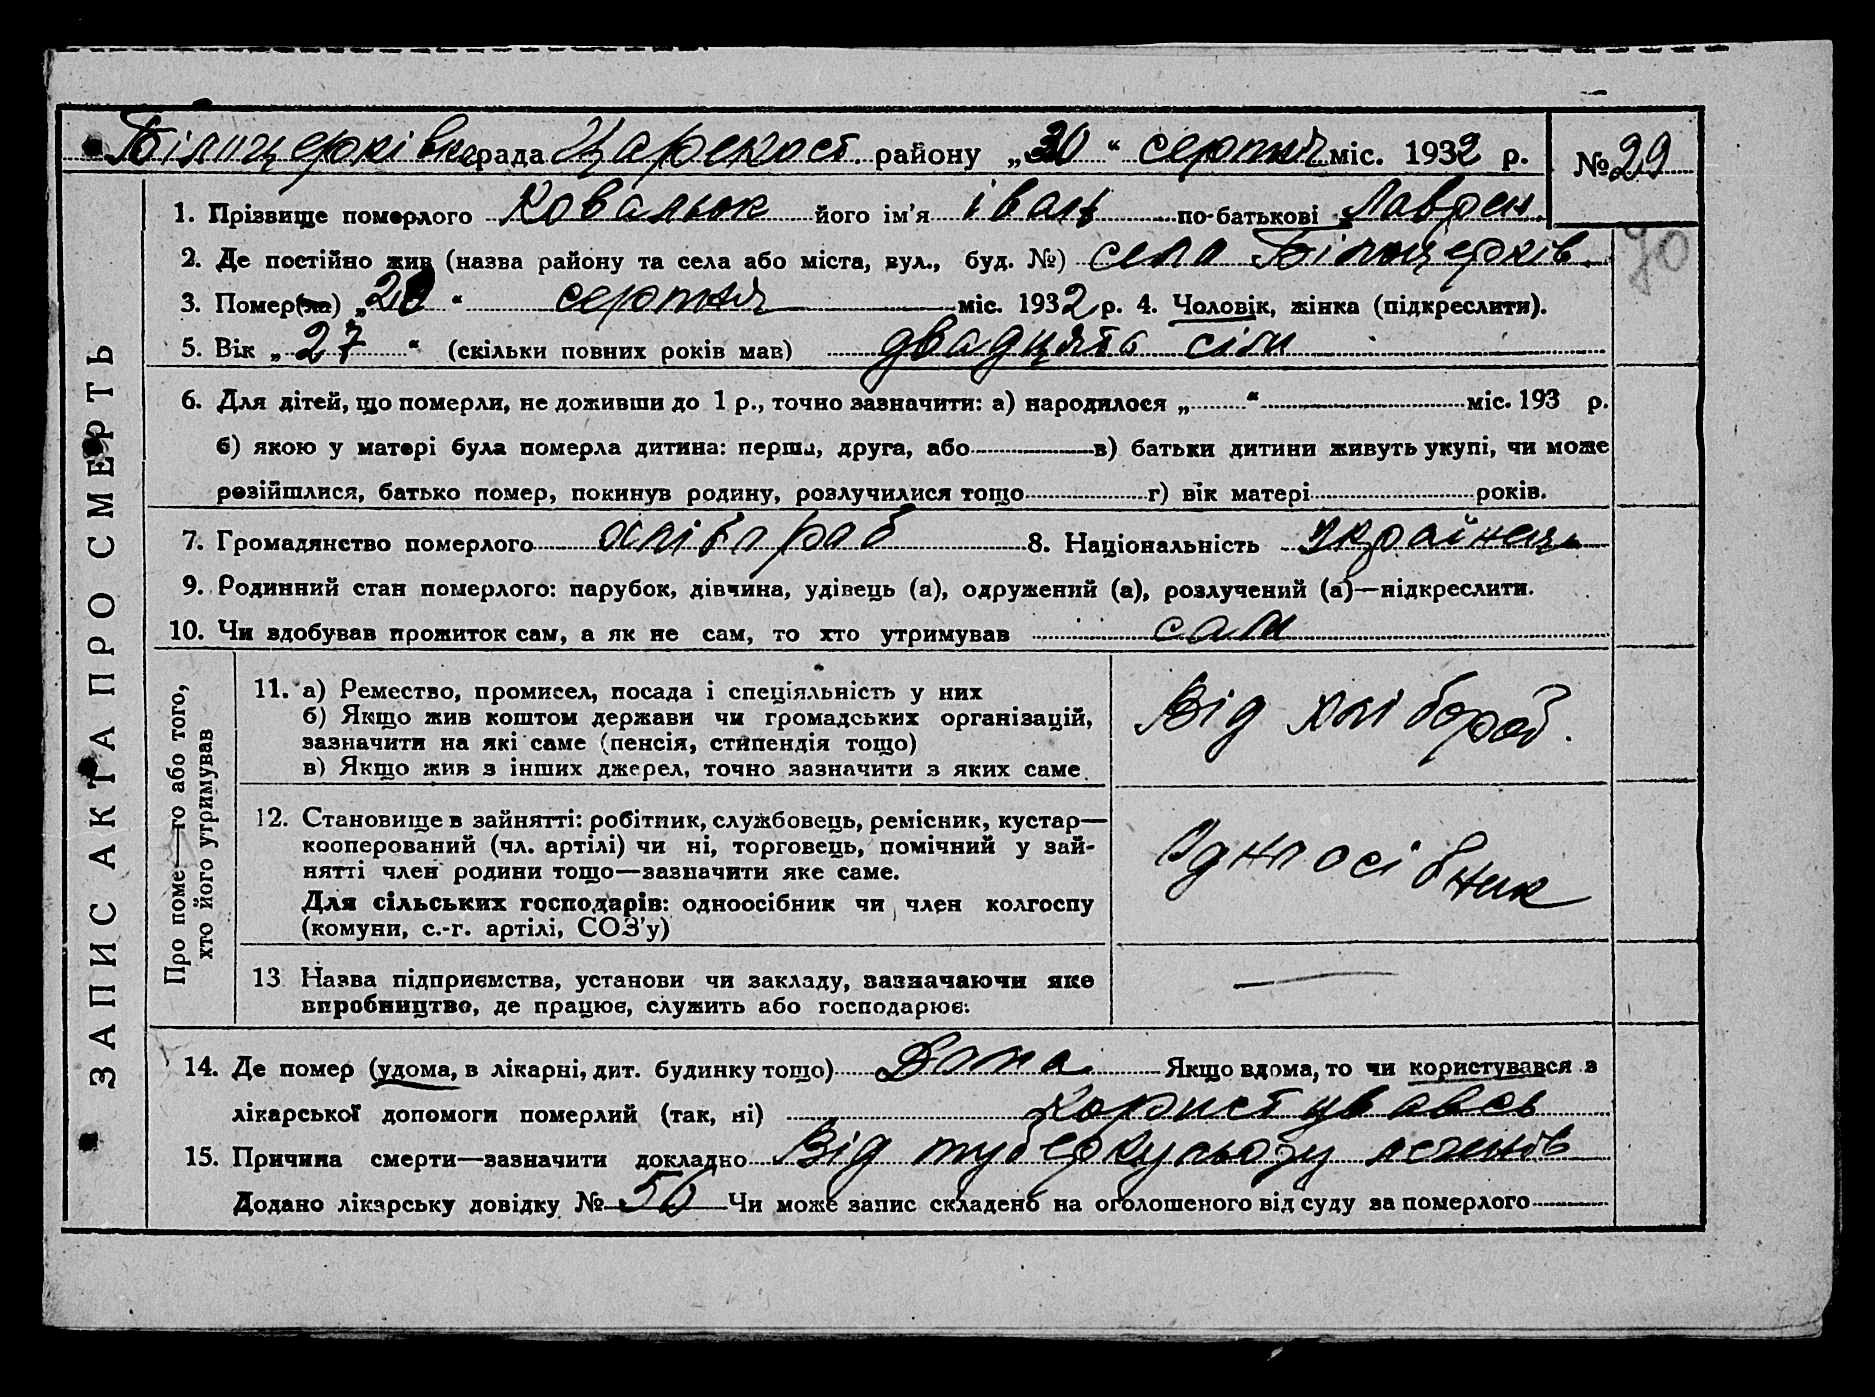 Білоцерківська рада района „30“ серпня міс. 1932 р. № 29
1. Прізвище померлого Ковальок його ім'я іван по-батькові Лаврен
70
2. Де постійно жив (назва району та села або міста, вул., буд. №) село Білоцерків.
3. Помер(ла) „28“ серпня міс. 1932 р. 4. Чоловік, жінка (підкреслити).
5. Вік „27“ (скільки повних років мав) двадцять сім
6. Для дітей, що померли, не доживши до 1 р., точно зазначити: а) народилося „ “ міс. 193 р.
б) якою у матері була померла дитина: перша, друга, або в) батьки дитини живуть укупі, чи може
розійшлися, батько помер, покинув родину, розлучилися тощо г) вік матері років.
7. Громадянство померлого хлібороб 8. Національність українець
9. Родинний стан померлого: парубок, дівчина, удівець (а), одружений (а), розлучений (а)—підкреслити.
10. Чи здобував прожиток сам, а як не сам, то хто утримував сам
11. а) Ремество, промисел, посада і спеціяльність у них
б) Якщо жив коштом держави чи громадських організацій,
зазначити на які саме (пенсія, стипендія тощо)
в) Якщо жив з інших джерел, точно зазначити з яких саме
Від хлібороб.
12. Становище в зайнятті: робітник, службовець, ремісник, кустар—
кооперований (чл. артілі) чи ні, торговець, помічний у зай-
нятті член родини тощо—зазначити яке саме.
Для сільських господарів: одноосібник чи член колгоспу
(комуни, с.-г. артілі, СОЗ'у)
Одноосібник
13 Назва підприємства, установи чи закладу, зазначаючи яке
виробництво, де працює, служить або господарює:
14. Де помер (удома, в лікарні, дит. будинку тощо) Дома Якщо вдома, то чи користувався з
лікарської допомоги померлий (так, ні) користувавсь
15. Причина смерти—зазначити докладно Від туберкульозу легенів
Додано лікарську довідку № 56 Чи може запис складено на оголошеного від суду за померлого
ЗАПИС АКТА ПРО СМЕРТЬ
Про поме—го або того,
хто його утримував